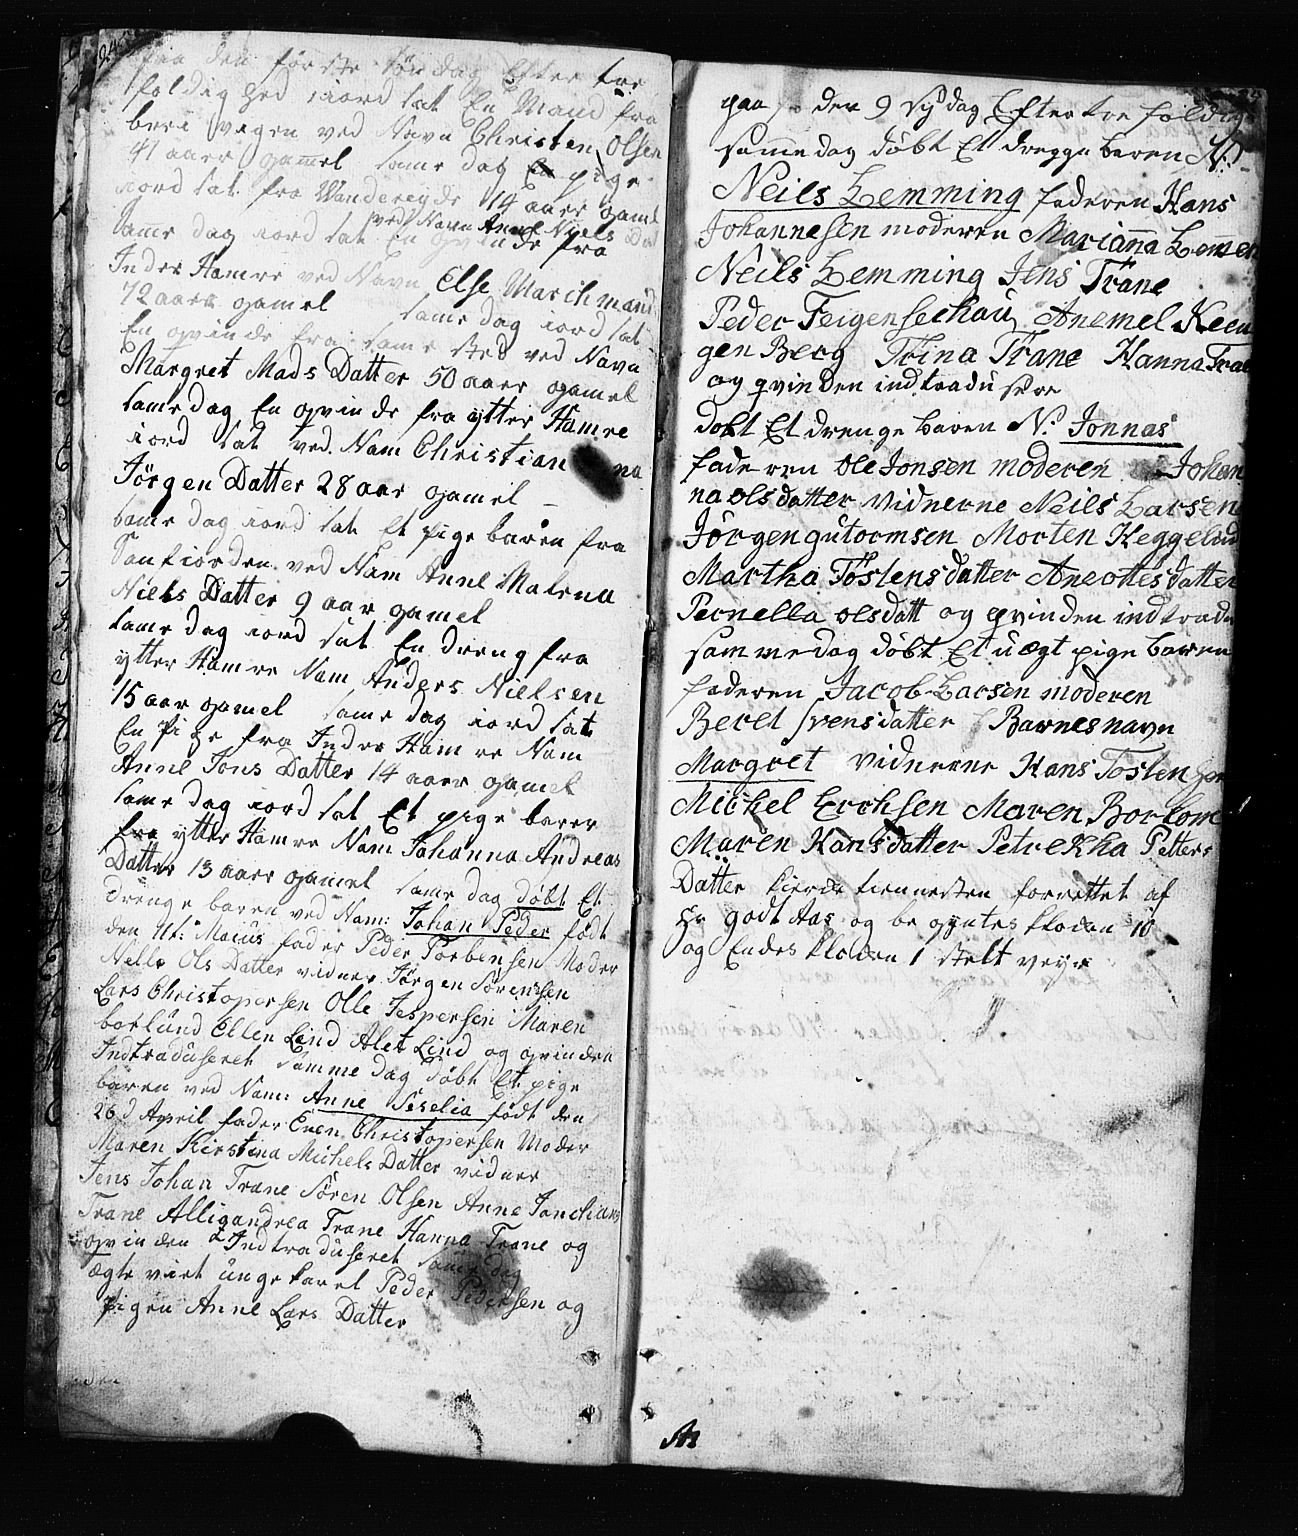 24
paa den første sön dag Efter tre
foldig hed iord sat En Mand fra
beri vigen ved Navn Christen Olsen
41 aaer gammel same dag En pige
iord sat fra Wandereyde 14 aaer gamel
ved Navn Anne Niels Dat
same dag iord sat En qvinde fra
Inder Hamre ved Navn Else Marchmand
72 aaer gamel same dag iord sat
En qvinde fra same sted ved Navn
Margret Mads Datter 50 aaer gamel
same dag En qvinde fra ytter Hamre
iord sat ved Nam Christian na
Jörgen Datter 28 aar gamel
same dag iord sat Et pige baren fra
Sanfiorden ved Nam Anne Malena
Niels Datter 9 aar gamel
same dag iord sat En dreng fra
ytter Hamre Nam Anders Nielsen
15 aar gamel same dag iord sat
En Pige fra Inder Hamre Nam
Anne Jons Datter 14 aaer gamel
same dag iord sat Et pige baren
fra ytter Hamre Nam Johanna Andreas
Datter 13 aaer gamel same dag döbt Et
drenge baren ved Nam: Johan Peder födt
den 11t: Maius fader Peder Torbensen Moder
Nelle Ols Datter vidner Jörgen Sörensen
Lars Christopersen Olle Jespersen Maren
borlund Ellen Lind Alet Lind og qvinden
Indtraduseret samme dag döbt Et pige
baren ved Nam: Anne Seselia födt den
26d April fader Even Christopersen Moder
Maren Kirstina Michels Datter vidner
Jens Johan Trane Sören Olsen Anne
Trane Alligandrea Trane Hanna Trane og
qvinden Indtraduseret same dag
ægte viet unge karel Peder Pedersen og
Pigen Anne Lars Datter
paa den 9 syndag Efter tre foldig
samme dag döbt Et drenge baren N:
Neils Lemming faderen Hans
Johannesen moderen Marianna Lemmen
Neils Lemming Jens Trane
Peder Feigenschau Anemel Keen
gen Berg Trina Trane Hanna Tran
og qvinden indtradusere
döbt Et drenge baren N: Jonnas
faderen Ole Jonsen moderen Johan
na olsdatter vidnerne Neils Larsen
Jörgen gutormsen Morten Heggelund
Martha Töstensdatter Aneottesdatter
Pernella olsdatt og qvinden indtradu
sammedag döbt Et uægt pige baren
faderen Jacob Larsen moderen
Beret svensdatter Barnes navn
Margret vidnerne Hans Tosten sen
Michel Erchsen Maren Borkom
Maren Hansdatter Petrekha Petters
Datter kierke tiennesten forrettet af
Hr godt Aas og be gyntes kloken 10
og Endes kloken 1 stelt veyr